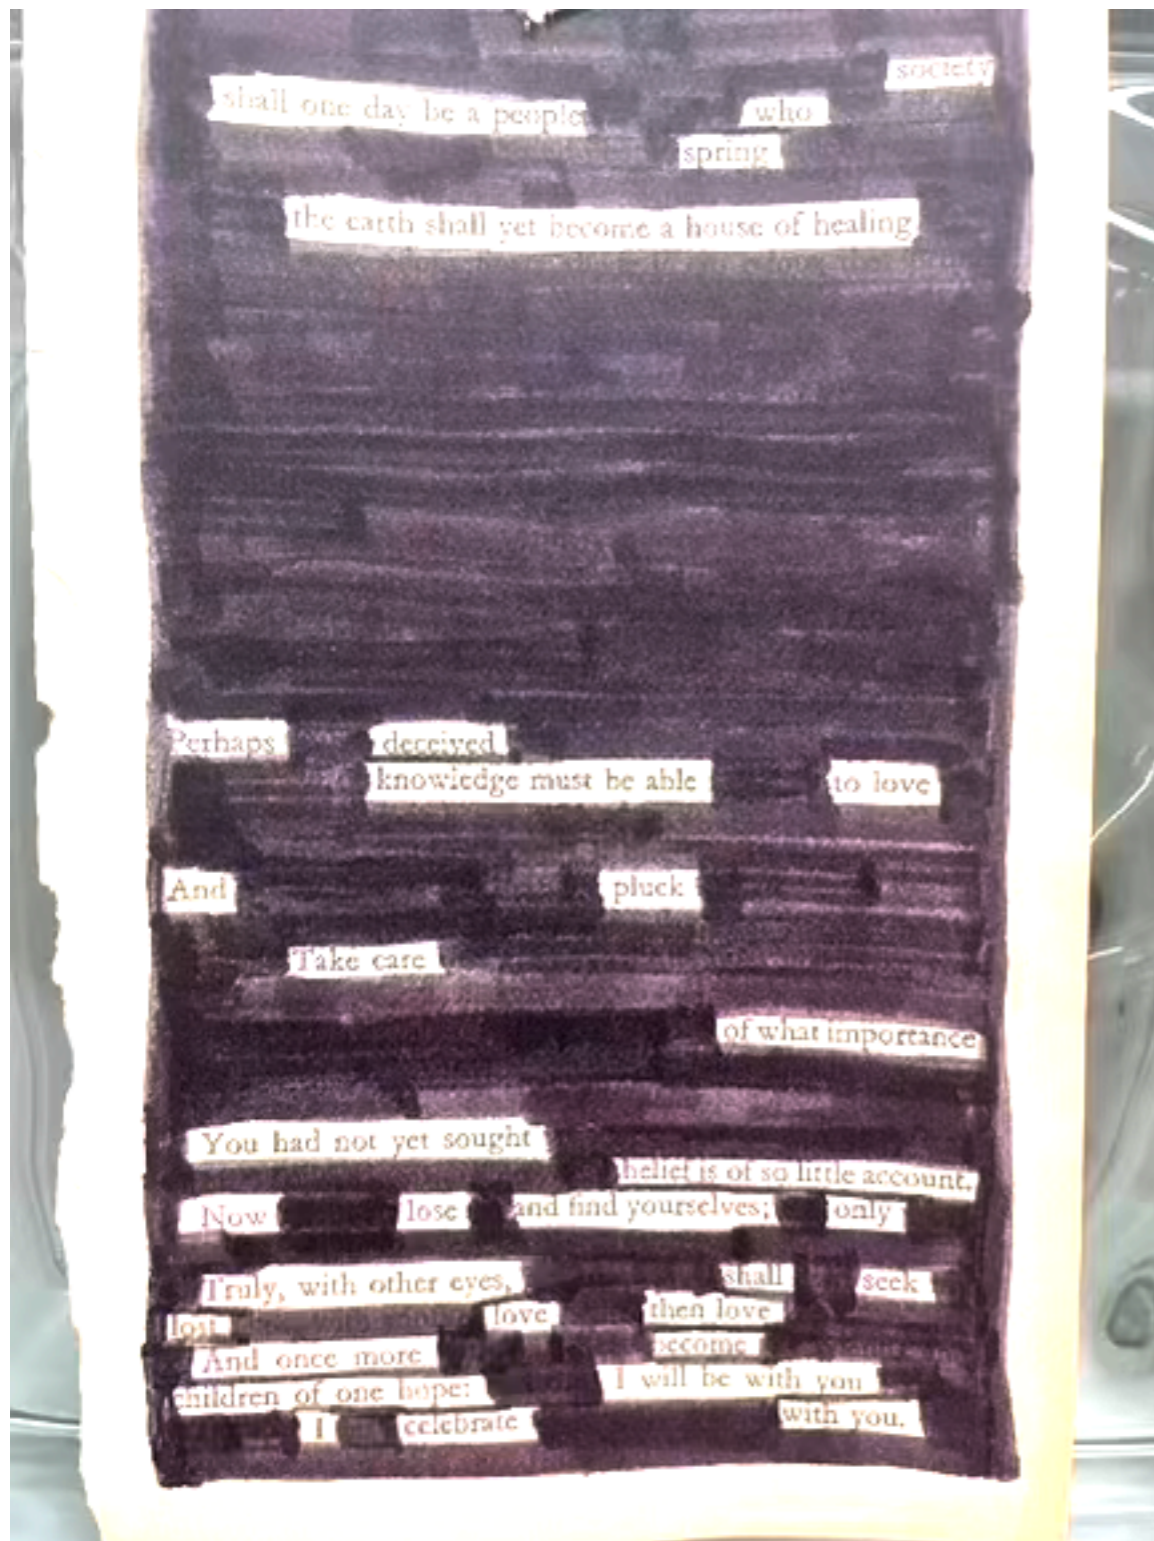 society
shall one day be a people who
spring
the earth shall yet become a house of healing
Perhaps deceived
knowledge must be able to love
And pluck
Take care
of what importance
You had not yet sought
belief is of so little account.
Now lose and find yourselves; only
Truly, with other eyes, shall seek
lost love then love
And once more become
children of one hope: I will be with you
I celebrate with you.